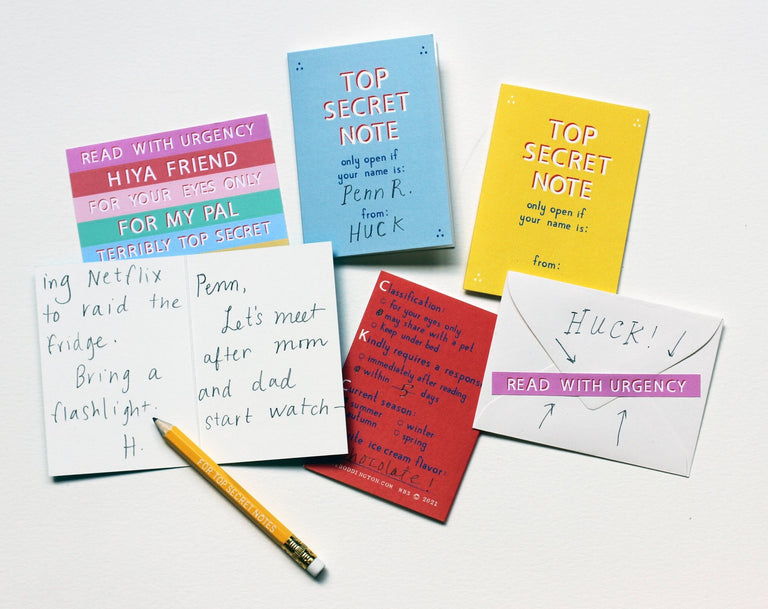 READ WITH URGENCY
HIYA FRIEND
FOR YOUR EYES ONLY
FOR MY PAL
TERRIBLY TOP SECRET
TOP
SECRET
NOTE
only open if
your name is:
Penn R.
from:
HUCK
TOP
SECRET
NOTE
only open if
your name is:
from:
ing Netflix
to raid the
fridge.
Bring a
flashlight.
H.
Penn,
Let's meet
after mom
and dad
start watch-
FOR TOP SECRET NOTES
Classification:
for your eyes only
may share with a pet
keep under bed
Kindly requires a respons
immediately after reading
within 5 days
urrent season:
summer
winter
autumn
spring
ite ice cream flavor:
hocolate!
ODDINGTON.COM RBS © 2021
HUCK!
READ WITH URGENCY